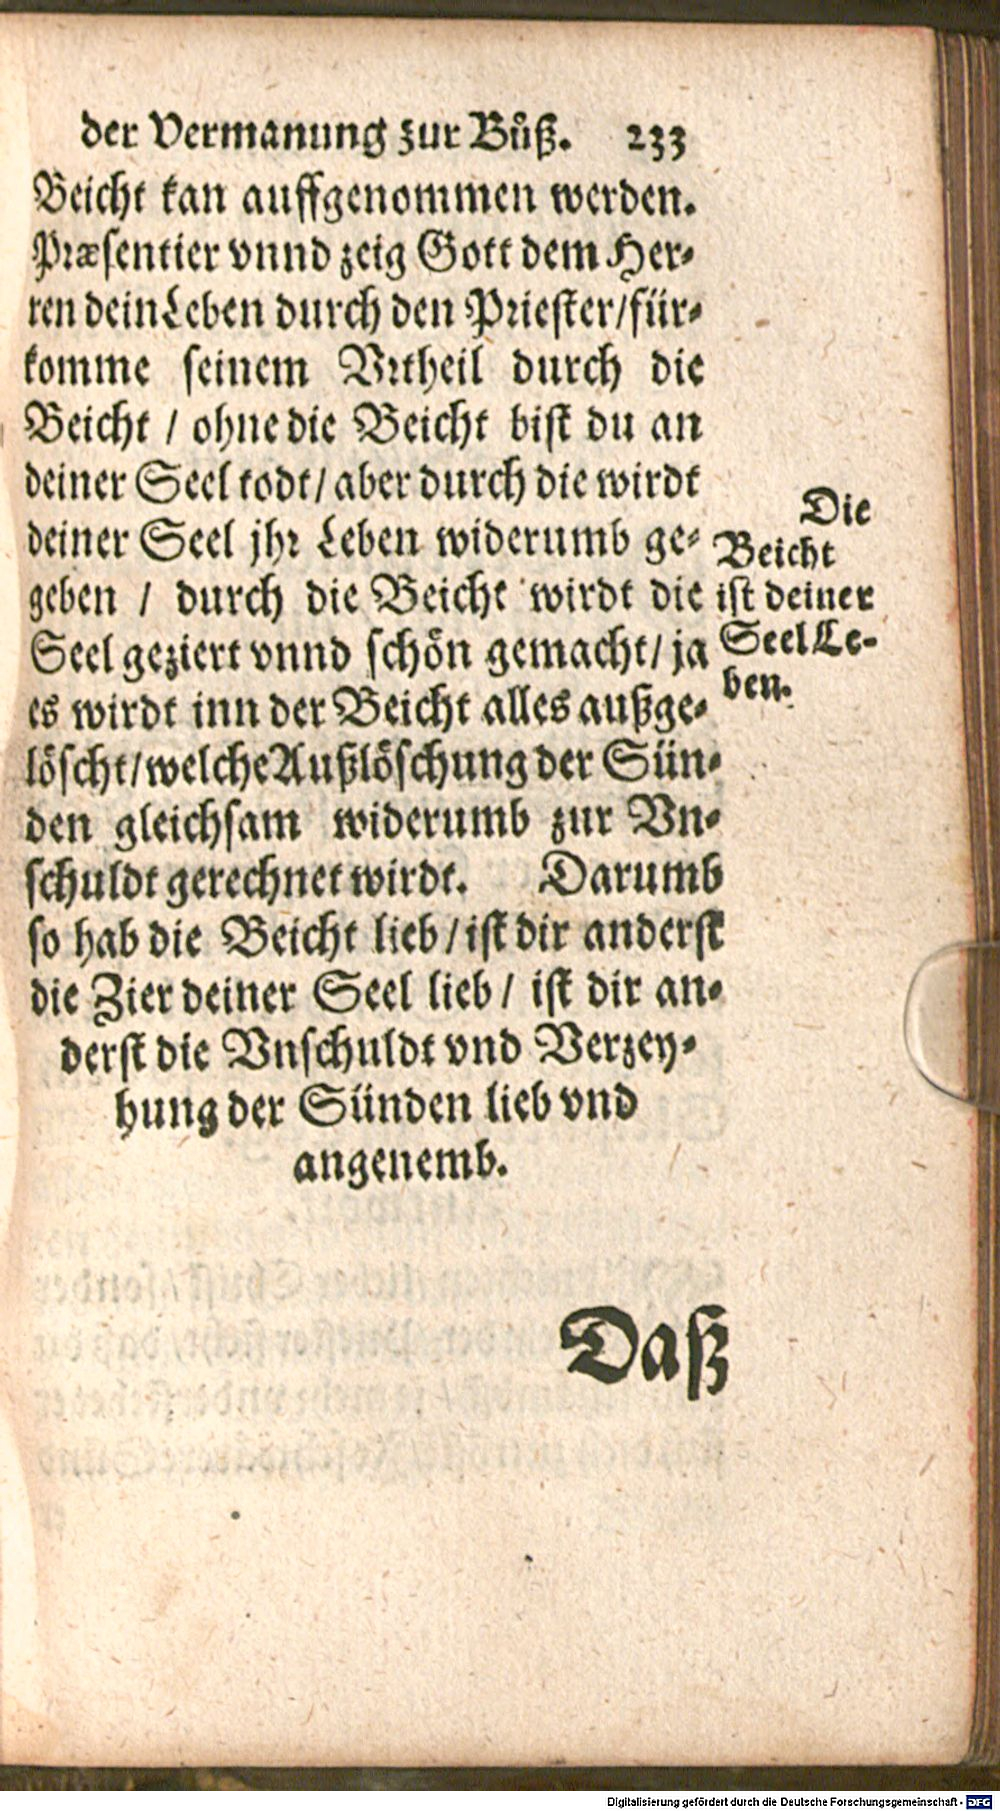 der Vermanung zur Bůß. 233
Beicht kan auffgenommen werden.
Præsentier vnnd zeig Gott dem Her-
ren dein Leben durch den Priester/für-
komme seinem Vrtheil durch die
Beicht / ohne die Beicht bist du an
deiner Seel todt/ aber durch die wirdt
deiner Seel jhr Leben widerumb ge-
geben / durch die Beicht wirdt die
Seel geziert vnnd schön gemacht/ ja
es wirdt inn der Beicht alles außge-
löscht/welche Außlöschung der Sün-
den gleichsam widerumb zur Vn-
schuldt gerechnet wirdt. Darumb
so hab die Beicht lieb / ist dir anderst
die Zier deiner Seel lieb / ist dir an-
derst die Vnschuldt vnd Verzey-
hung der Sünden lieb vnd
angenemb.
Die
Beicht
ist deiner
Seel Le-
ben.
Daß
Digitalisierung gefördert durch die Deutsche Forschungsgemeinschaft - DFG